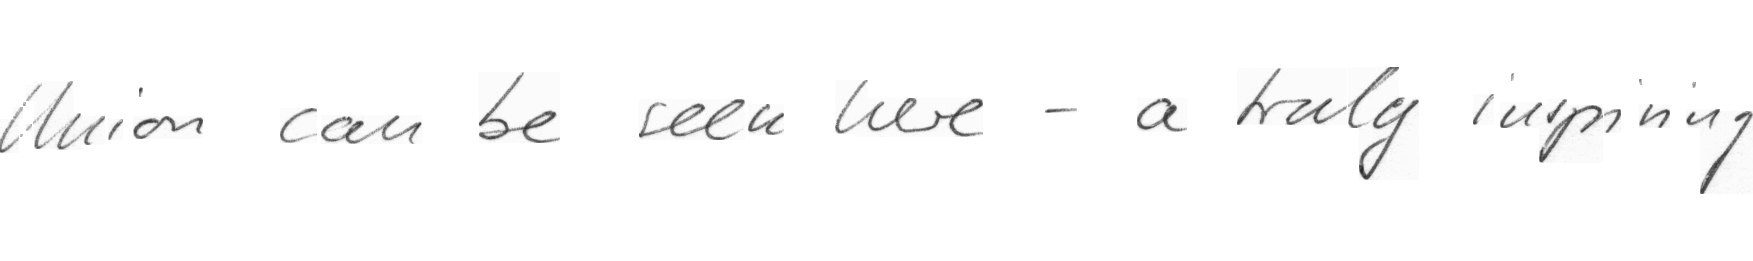 Union can be seen here - a truly inspiring